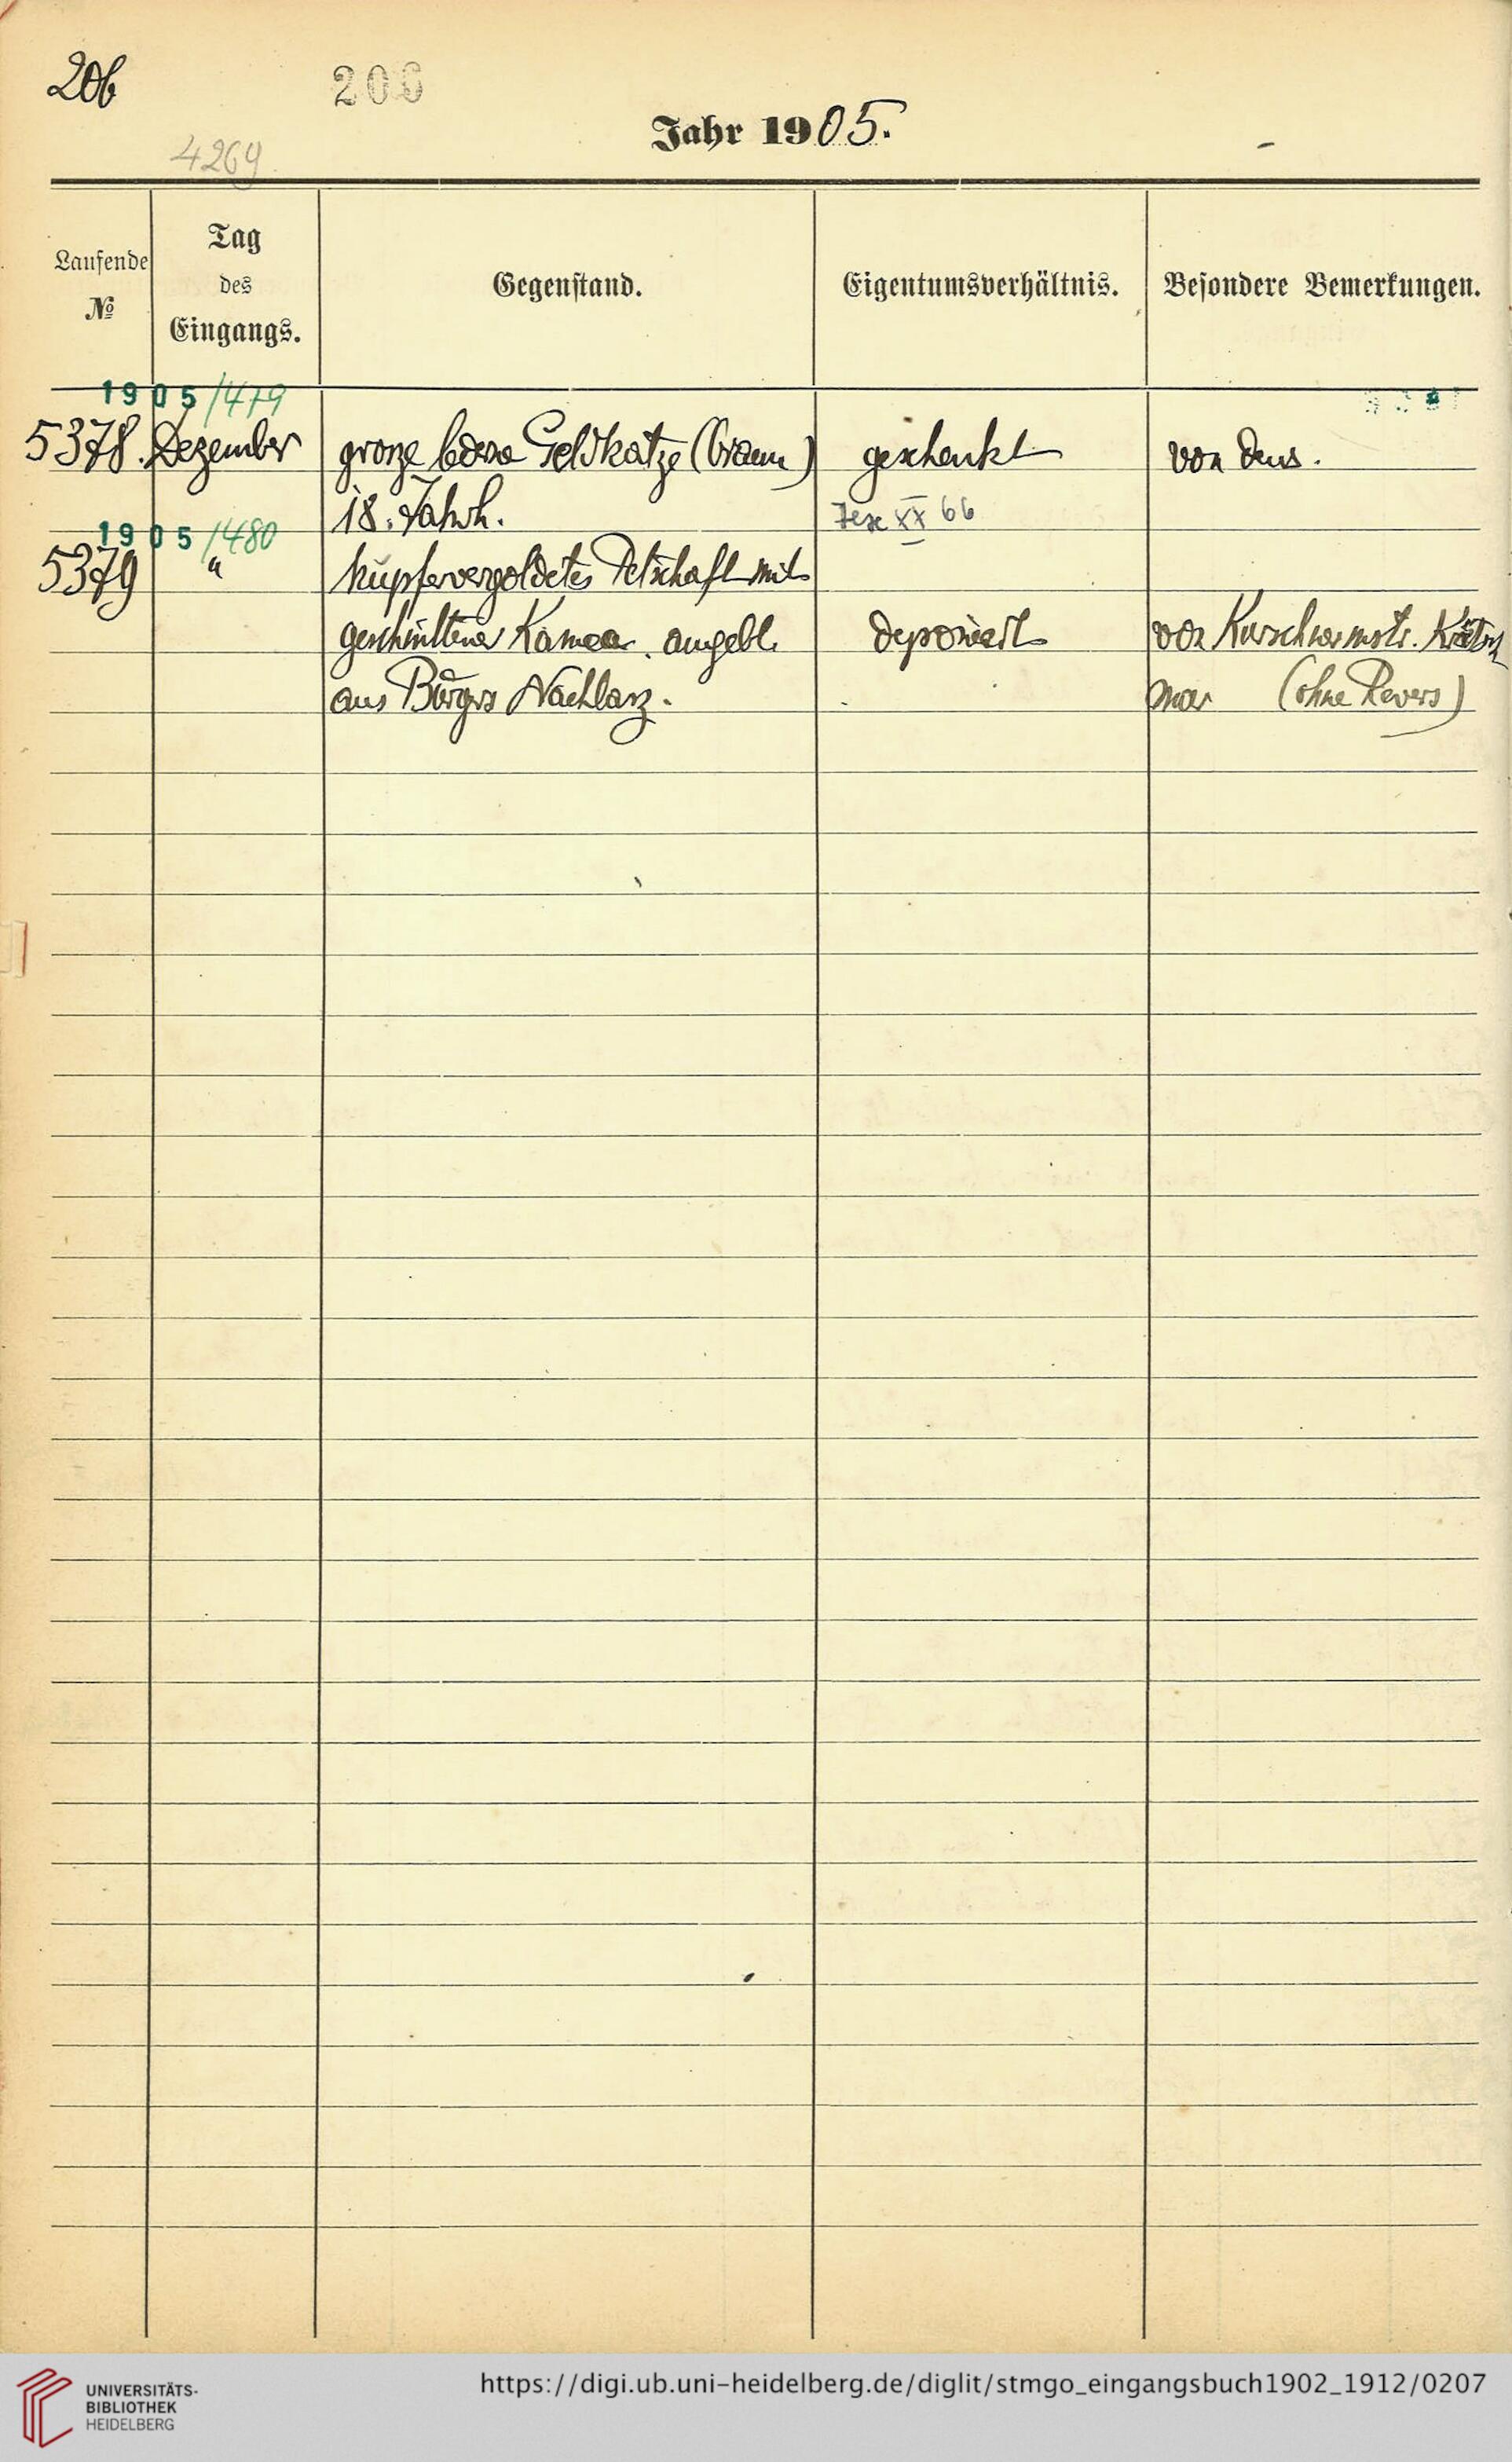 206
206
4269
Jahr 1905.
Laufende
№
Tag
des
Eingangs.
Gegenstand.
Eigentumsverhältnis.
Besondere Bemerkungen.
1905/479
5378. Dezember grosze lederne Geldkatze (braun) geschenkt von dems.
18. Jahrh. XX 66
1905/480
5379 " kupfervergoldetes Petschaft mit
geschnittener Kamee, angebl. deponiert von Kürschnermstr.
aus Bürgers Nachlasz. (ohne Revers)
UNIVERSITÄTS-
BIBLIOTHEK
HEIDELBERG
https://digi.ub.uni-heidelberg.de/diglit/stmgo_eingangsbuch1902_1912/0207